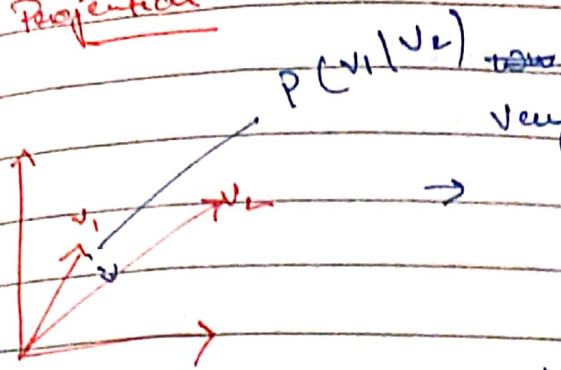 Projection
P(v1|v2)
Very
v1
v2